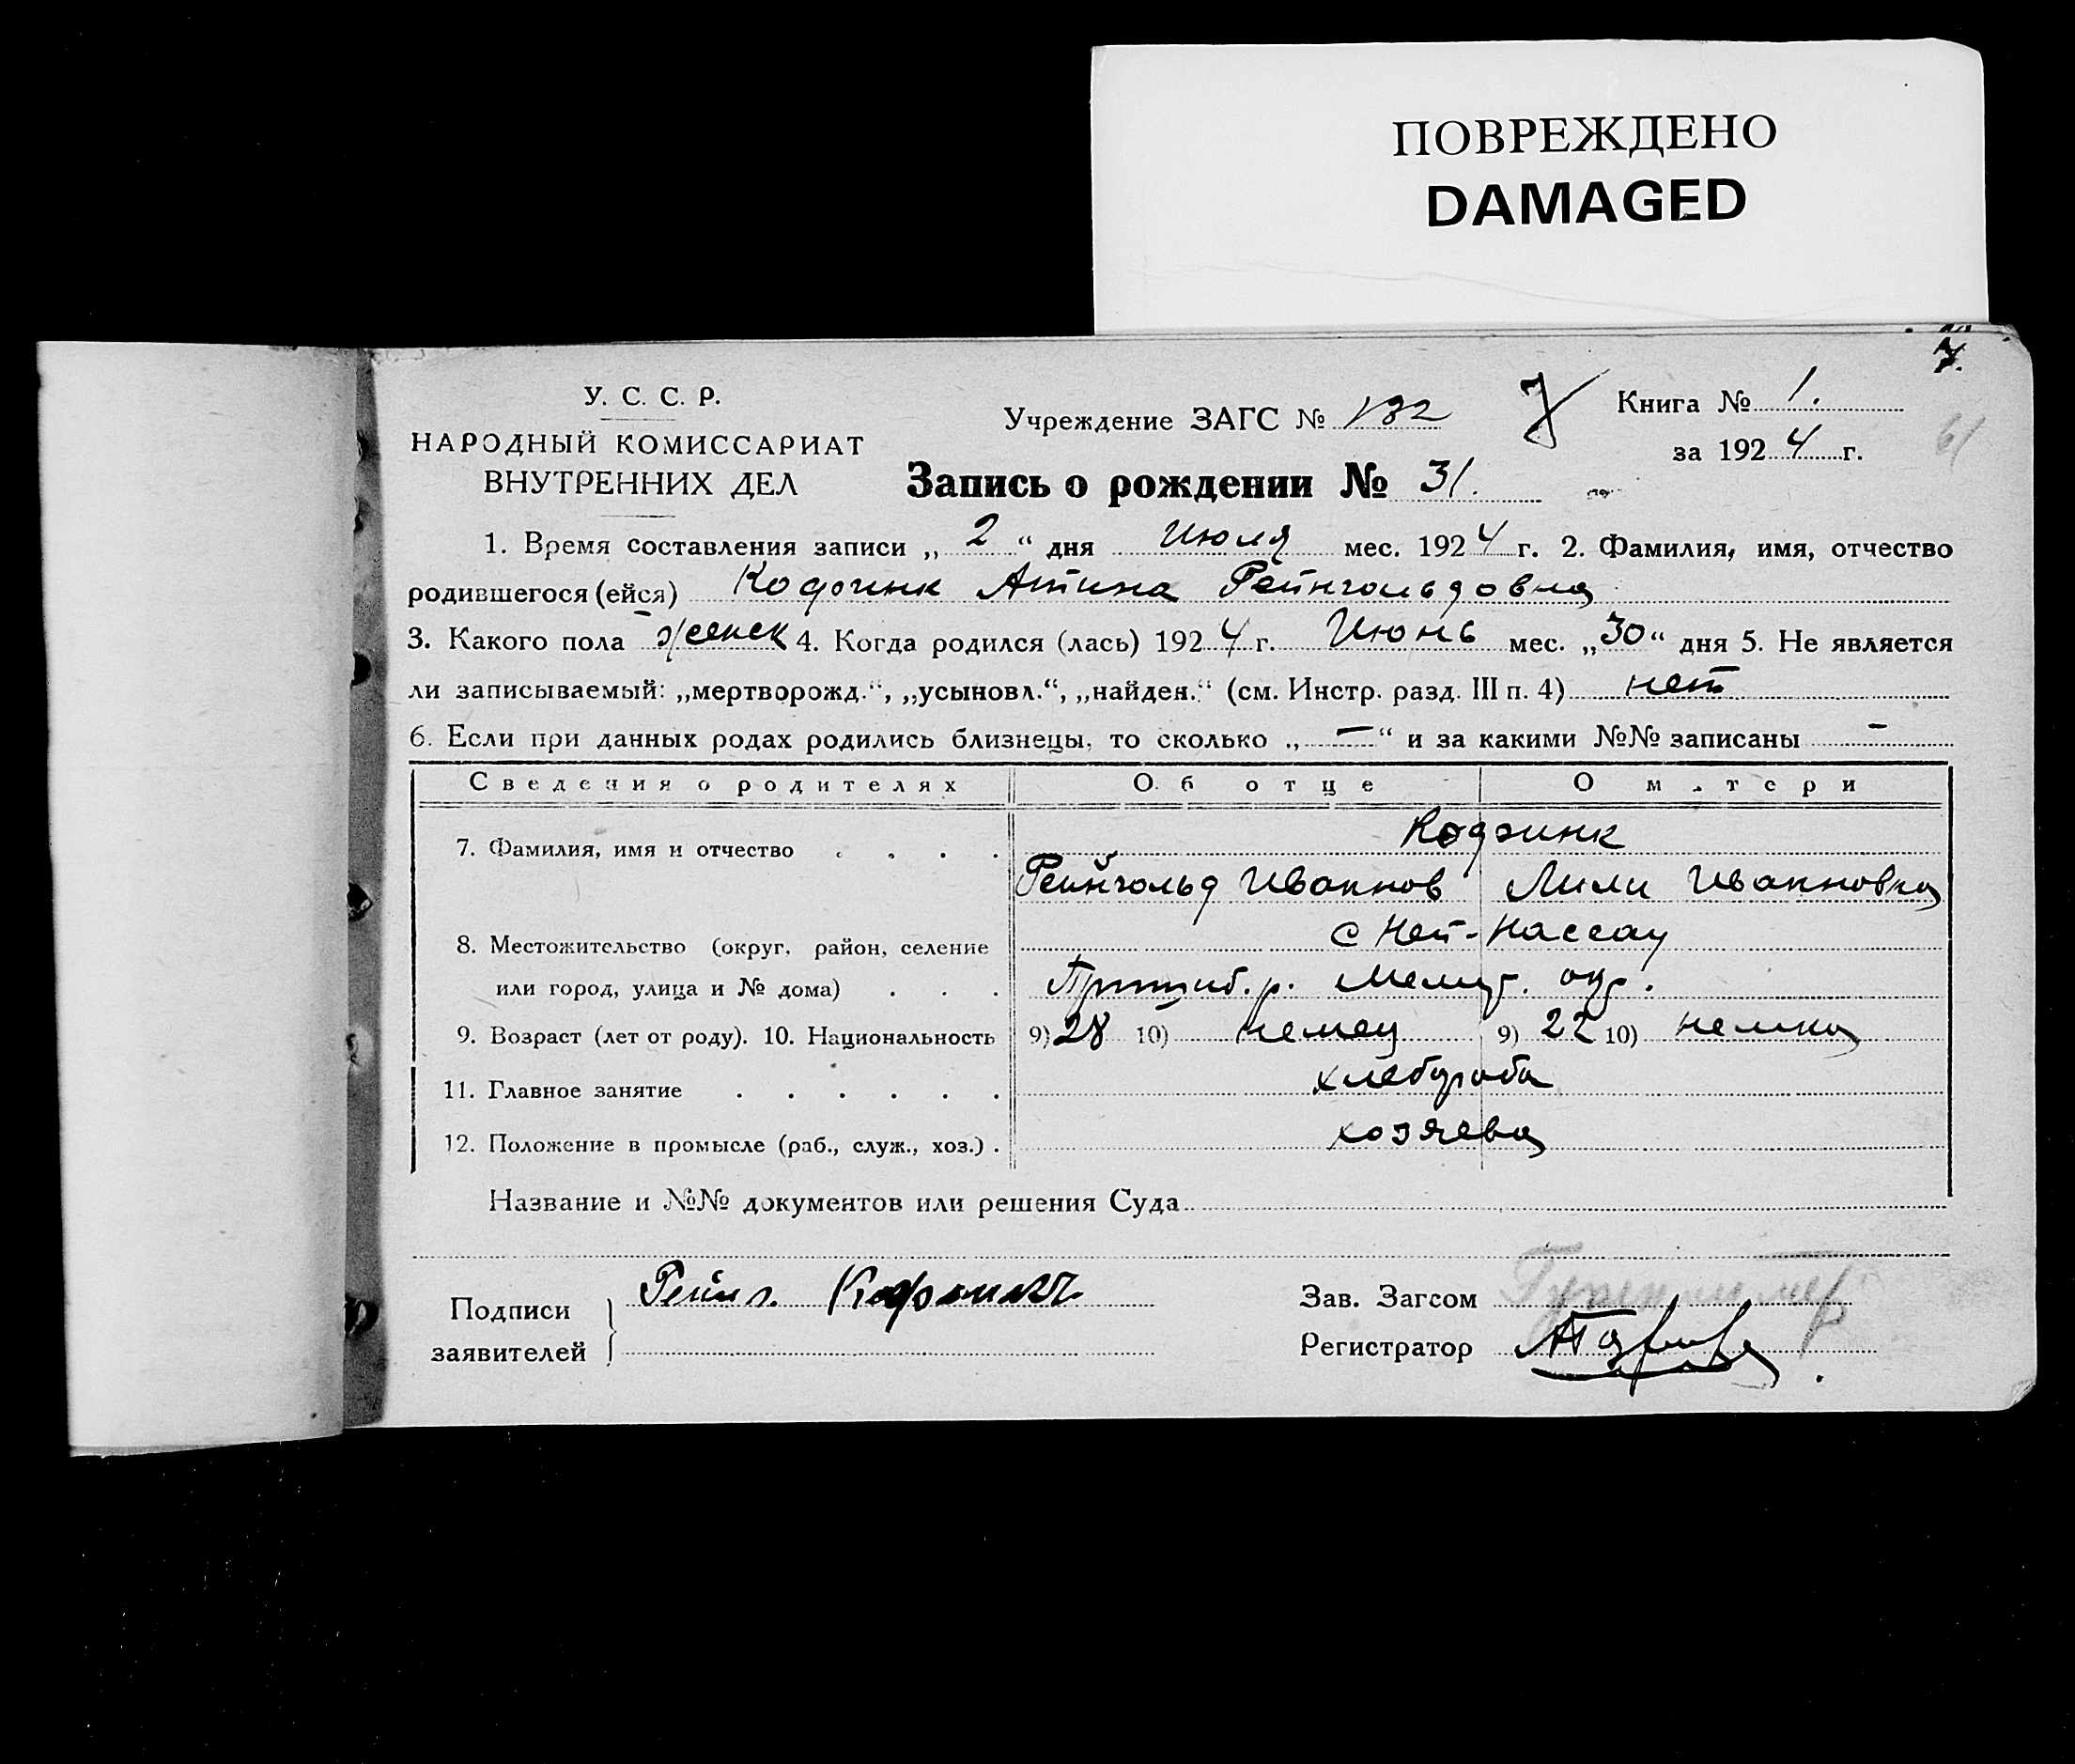 ПОВРЕЖДЕНО
DAMAGED
У. С. С. Р.
НАРОДНЫЙ КОМИССАРИАТ
ВНУТРЕННИХ ДЕЛ
Учреждение ЗАГС № 132
Книга № 1.
за 1924 г.
61
Запись о рождении № 31.
1. Время составления записи „ 2 “ дня Июля мес. 1924 г. 2. Фамилия, имя, отчество
родившегося (ейся) Рейнгольдовна
3. Какого пола женск 4. Когда родился (лась) 1924 г. Июнь мес. „30“ дня 5. Не является
ли записываемый: „мертворожд.“, „усыновл.“, „найден.“ (см. Инстр. разд. III п. 4) нет
6. Если при данных родах родились близнецы, то сколько „ — “ и за какими №№ записаны —
Сведения о родителях Об отце О матери
7. Фамилия, имя и отчество . . . .
Рейнгольд Иванов Лили Ивановна
8. Местожительство (округ, район, селение с Ней-Нассау
или город, улица и № дома) . . . Мелит. окр.
9. Возраст (лет от роду). 10. Национальность 9) 28 10) немец 9) 22 10) немка
11. Главное занятие . . . . . . хлебороба
12. Положение в промысле (раб., служ., хоз.) . хозяева
Название и №№ документов или решения Суда
Подписи
заявителей
Зав. Загсом
Регистратор